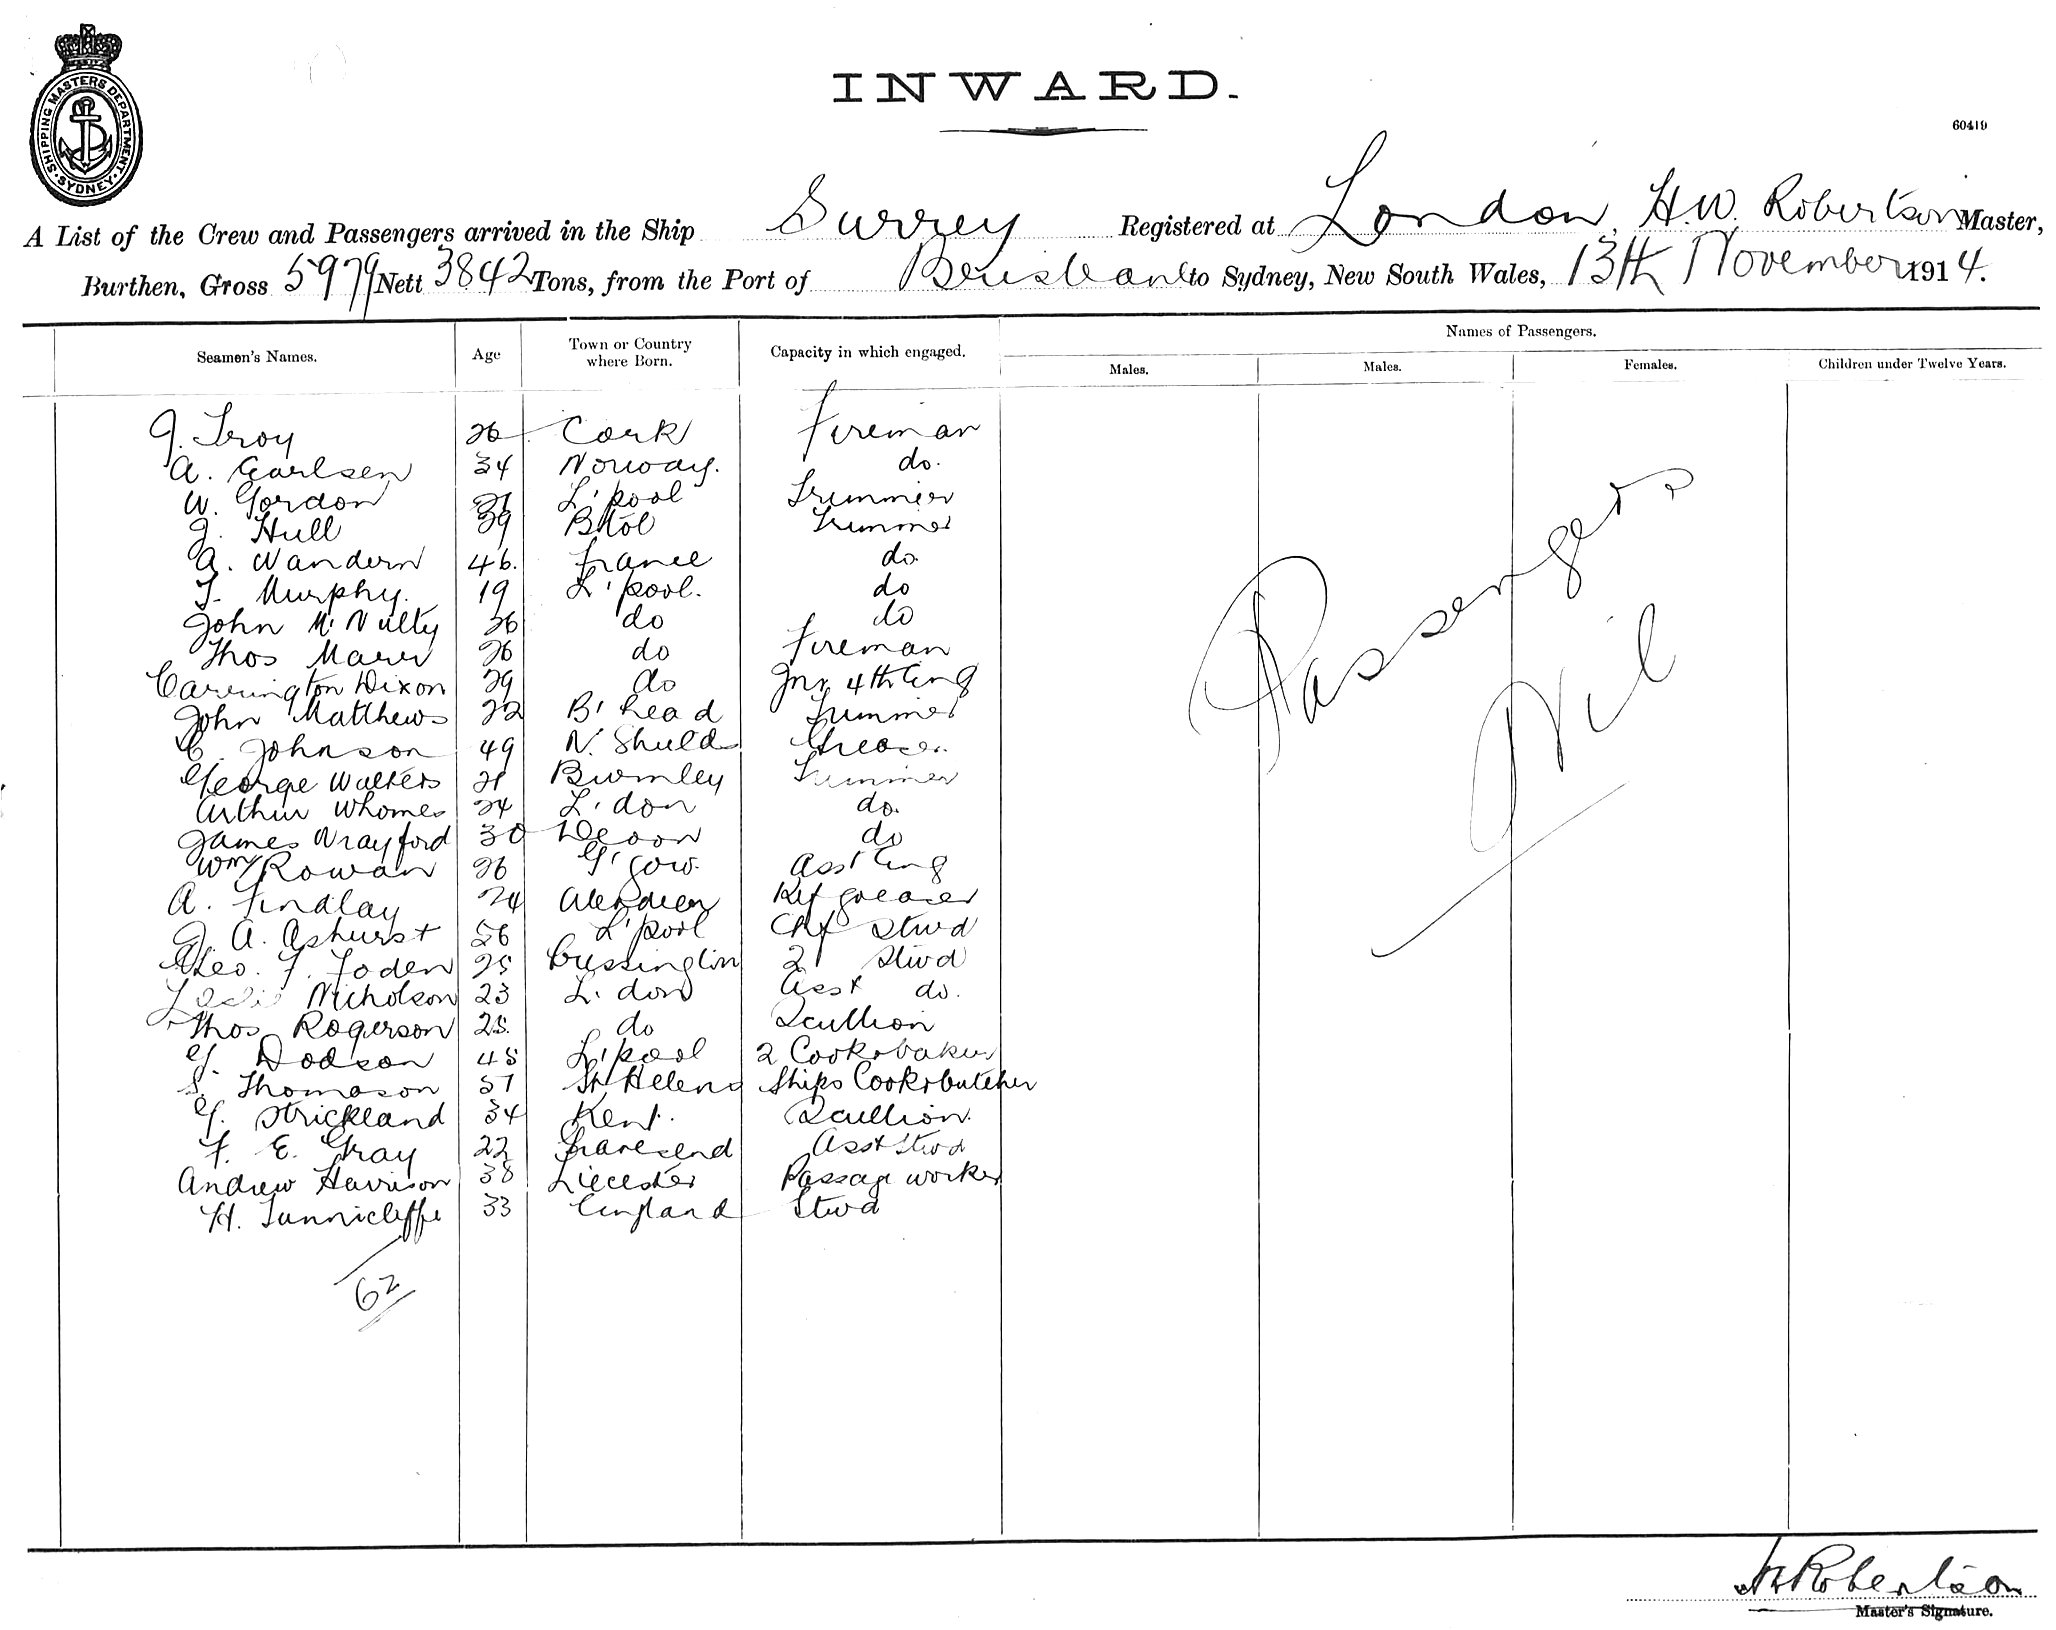 SHIPPING MASTERS DEPARTMENT. SYDNEY.
INWARD.
60419
A List of the Crew and Passengers arrived in the Ship Surrey Registered at London, H.W. Robertson Master,
Burthen, Gross 5979 Nett 3842 Tons, from the Port of Brisbane to Sydney, New South Wales, 13th November 1914.
Seamen's Names. Age Town or Country where Born. Capacity in which engaged. Names of Passengers.
Males. Males. Females. Children under Twelve Years.
J. Troy 26 Cork Fireman
A. Carlsen 34 Norway. do.
W. Gordon L'pool Trimmer
J. Hull 39 B'tol Trimmer
A. Wandern 46. France do.
T. Murphy. 19 L'pool. do
John McNulty 26 do do
Thos 26 do Fireman
Carrington Dixon 29 do Jnr 4th Eng
John Matthews 22 B'head Trimmer
C. Johnson 49 N. Shields Greaser.
George Walters 21 Bromley Trimmer
Arthur Whomes 24 L'don do.
James Wrayford 30 Devon do
Wm Rowan 26 G'gow. Asst Eng
A. Findlay 24 Aberdeen Ref greaser
J. A. Ashurst 56 L'pool Chf Stwd
Geo. F. Foden 25 Cressington 2 Stwd
Leslie Nicholson 23 L'don Asst do.
Thos Rogerson 25. do Scullion
G. Dodson 45 L'pool 2 Cook & baker
S. Thomason 51 St Helens Ships Cook & butcher
G. Strickland 34 Kent. Scullion.
F. E. Gray 22 Gravesend Asst Stwd
Andrew Harrison 38 Liecester Passage worker
H. Tunnicliffe 33 England Stwd
62
Passengers
Nil
H W Robertson
Master's Signature.